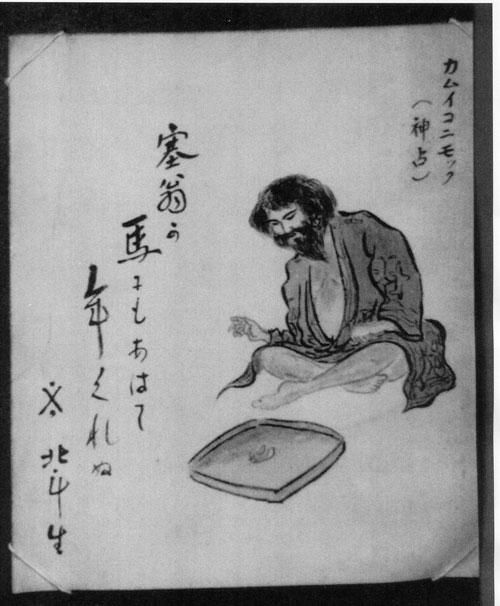 カムイコニモック
（神占）
塞翁か
馬にもあはて
年くれぬ
北斗生